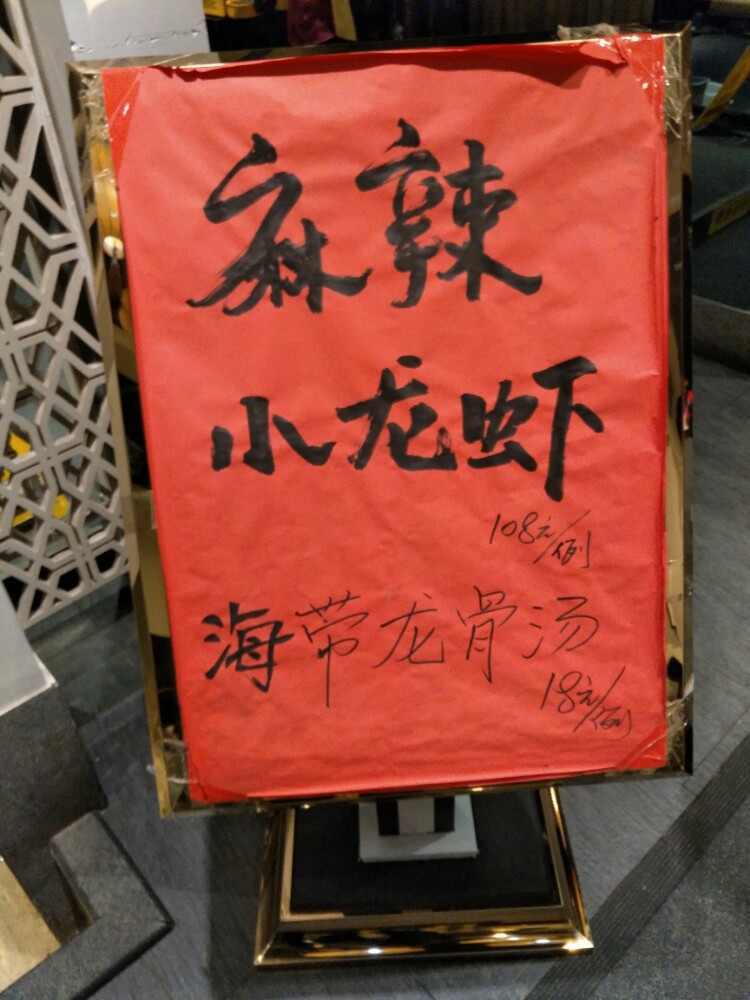 麻辣
小龙虾
108元/例
海带龙骨汤
18元/例